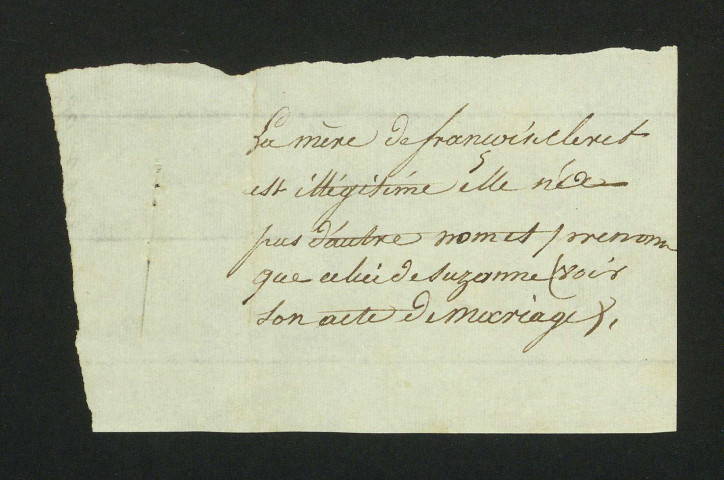 La mère de françois Cleret
est illégitime elle n'éa
pas d'autre nom et prenom
que celui de suzanne (voir
son acte de mariage),